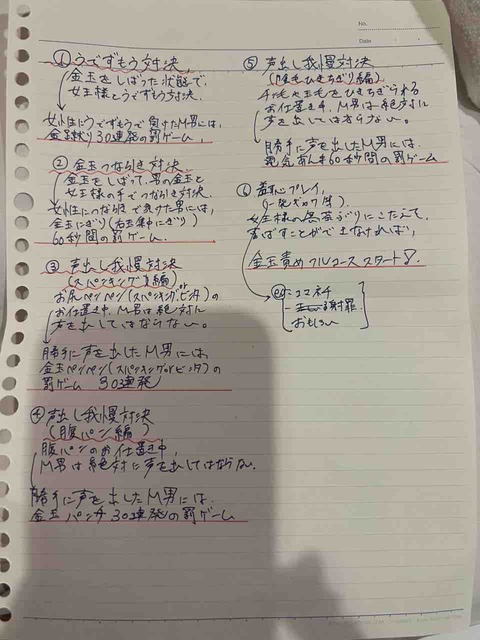 ① うでずもう対決
金玉をしばった状態で、
女王様とうでずもう対決。
女性にうでずもうで負けたM男には、
金蹴り30連発の罰ゲーム。
② 金玉つな引き対決
金玉をしばって、男の金玉と
女王様の手でつな引き対決。
女性につな引きで負けた男には、
金玉にぎり(右玉集中にぎり)
60秒間の罰ゲーム.
③ 声出し我慢対決
(スパンキング編)
お尻ペンペン(スパンキングorビンタ)の
お仕置き中、M男は絶対に
声を出してはならない。
勝手に声を出したM男には、
金玉ペンペン(スパンキングorビンタ)の
罰ゲーム 30連発
④ 声出し我慢対決
(腹パン編)
腹パンのお仕置き中、
M男は絶対に声を出してはならない。
勝手に声を出したM男には、
金玉パンチ30連発の罰ゲーム
⑤ 声出し我慢対決
ひきちぎり編)
チン毛や玉毛をひきちぎられる
お仕置き中、M男は絶対に
声を出してはならない。
勝手に声を出したM男には、
電気あんま60秒間の罰ゲーム
⑥ 羞恥プレイ.
(一発ギャグ)
女王様の無茶ぶりにこたえて、
喜ばすことができなければ、
金玉責めフルコーススタート!
コマネチ
謝罪
おもしろい
No.
Date